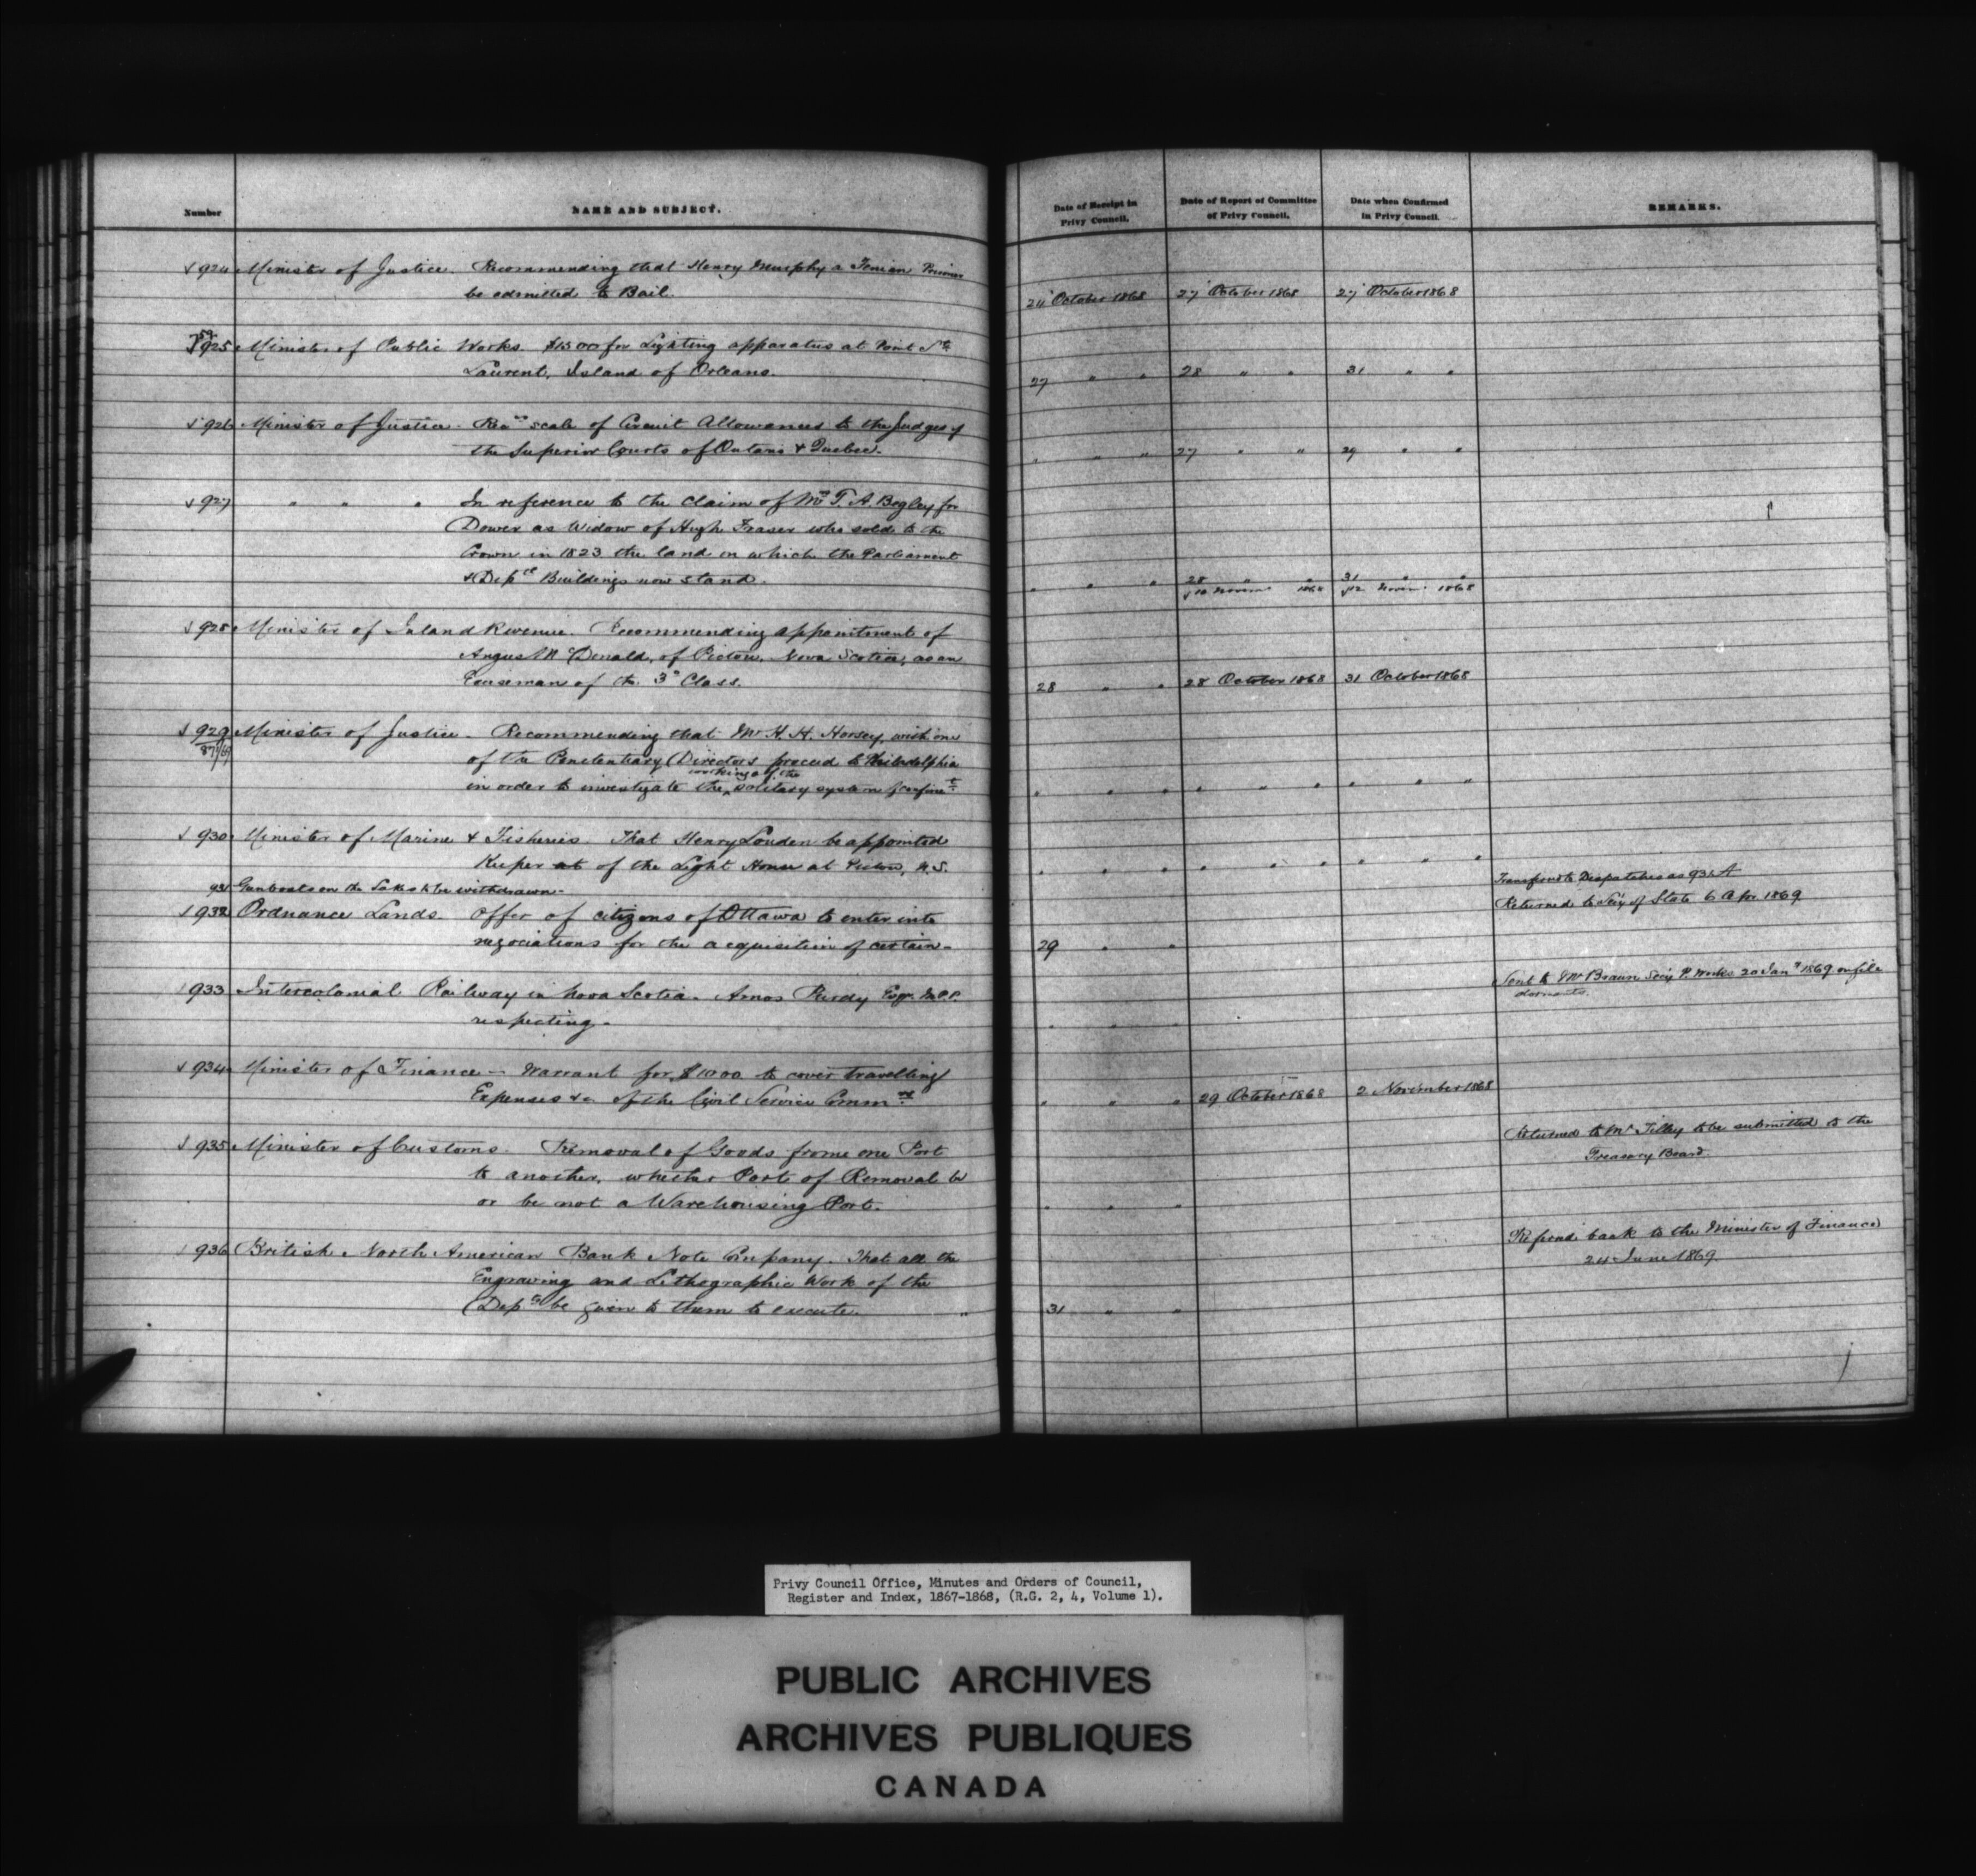 Number
NAME AND SUBJECT.
Date of Receipt in
Privy Council.
Date of Report of Committee
of Privy Council.
Date when Confirmed
in Privy Council.
REMARKS.
924 Minister of Justice. Recommending that Henry Murphy a Fenian
be admitted to Bail.
24 October 1868 27 October 1868 27 October 1868
925 Minister of Public Works. for Lighting apparatus at Point St
Laurent, Island of Orleans.
27 " " 28 " " 31 " "
926 Minister of Justice. scale of Circuit Allowances to the Judges of
the Superior Courts of Ontario & Quebec.
" " " 27 " " 29 " "
927 " " " In reference to the claim of Mrs T. A. Begley for
Dower as Widow of Hugh Fraser who sold to the
Crown in 1823 the land on which the Parliament
& Deptl Buildings now stand.
" " " 28 " " 31 " "
10 Novem 1868 12 Novem 1868
928 Minister of Inland Revenue. Recommending appointment of
Angus McDonald, of Pictou, Nova Scotia, as an
of the 3d Class.
28 " " 28 October 1868 31 October 1868
929 Minister of Justice - Recommending that Mr H. H. Horsey, with one
of the Penetentiary Directors proceed to Philadelphia
working of the
in order to investigate the solitary system
" " " " " " " " "
930 Minister of Marine & Fisheries. That Henry Louden be appointed
Keeper at of the Light House at Pictou, N.S.
" " " " " " " " "
931 Gunboats on the Lakes to be withdrawn -
Transferred to Dispatches as 931 A
932 Ordnance Lands. Offer of citizens of Ottawa to enter into
negociations for the acquisition of certain -
29 " "
Returned to Secy of State 6 Apr. 1869
933 Intercolonial Railway in Nova Scotia. Amos Purdy Esqr. M.P.P.
respecting -
" " "
Sent to Mr Braun Secy P. Works 20 Jany 1869 on file
934 Minister of Finance - Warrant for $1000 to cover travelling
Expenses &c of the Civil Service Commn
" " " 29 October 1868 2 November 1868
935 Minister of Customs. Removal of Goods frome one Port
to another, whether Port of Removal be
or be not a Warehousing Port.
" " "
Returned to Mr Tilley to be submitted to the
Treasury Board
936 British North American Bank Note Company. That all the
Engraving and Lithographic Work of the
Depts be given to them to execute.
31 " "
Refered back to the Minister of Finance
24 June 1869
Privy Council Office, Minutes and Orders of Council,
Register and Index, 1867-1868, (R.G. 2, 4, Volume 1).
PUBLIC ARCHIVES
ARCHIVES PUBLIQUES
CANADA